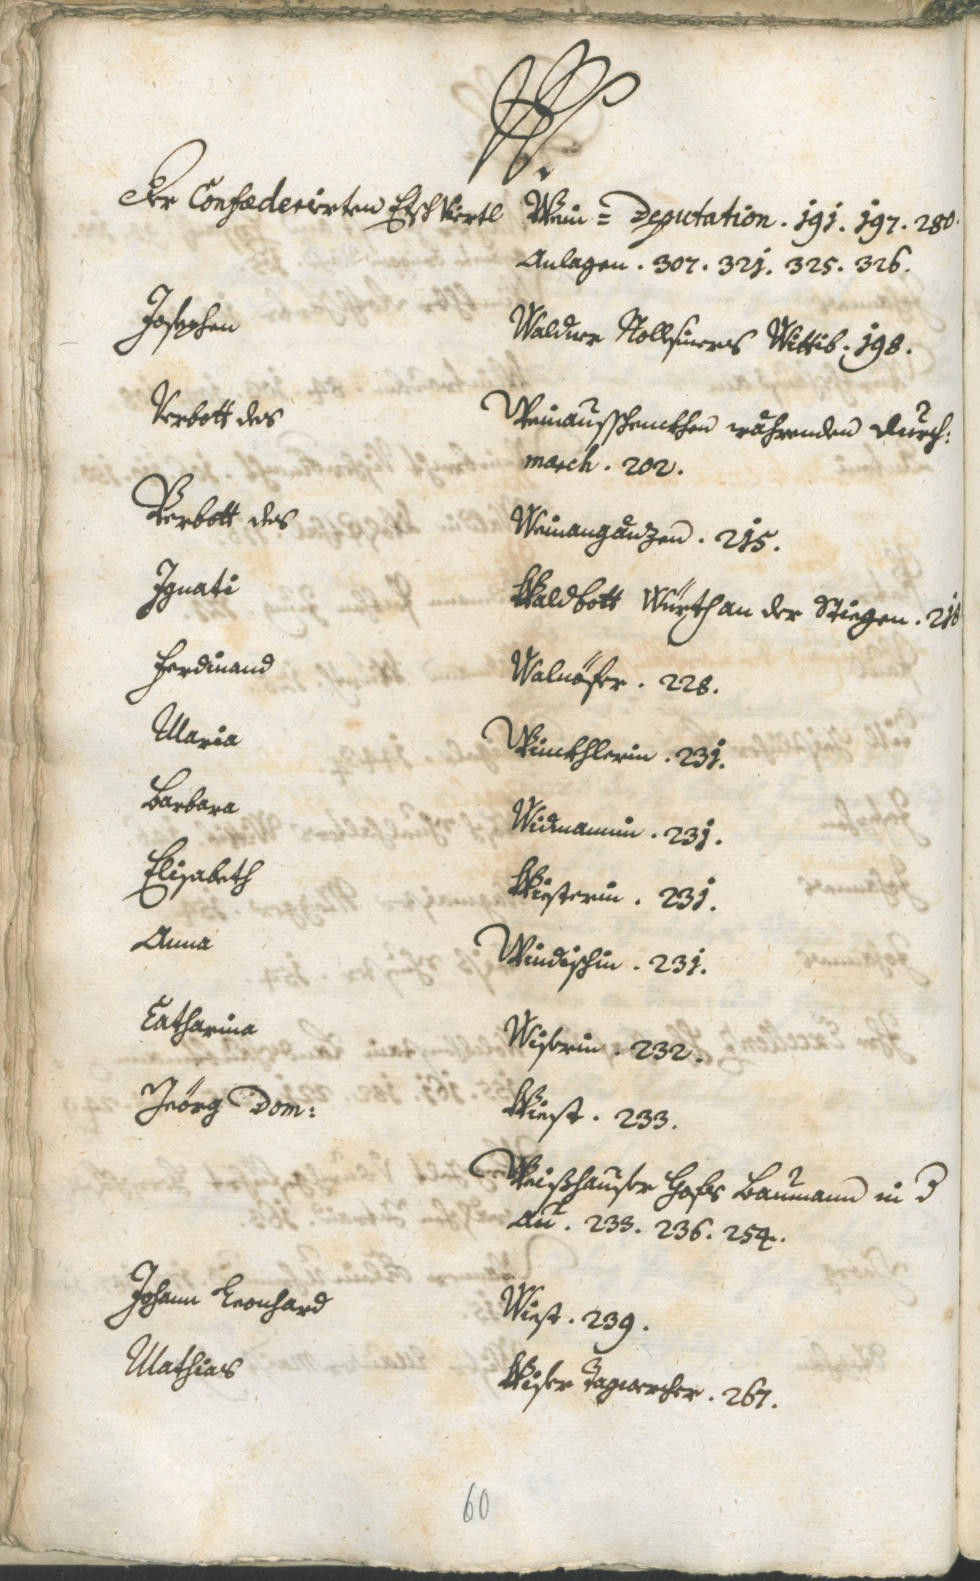 W.
Der Confæderierten Etsch Viertl Wein = Deputation . 191 . 197 . 280.
Anlagen . 307 . 321 . 325 . 326 .
Josephen Waldner Wittib . 198 .
Verbott des Weinausschenkhen währenden Durch:
march . 202 .
Verbott des Weinangänzen . 215 .
Ignati Waldbott Würth an der Stiegen . 218
Ferdinand Walnöfer . 228 .
Maria Winkhlerin . 231 .
Barbara Widmannin . 231 .
Elisabeth Wiesterin . 231 .
Anna Windischin . 231 .
Catharina Wiserin . 232 .
Jeörg Dom: Wiest . 233 .
Weißhauser Hofs Baumann in d
Au . 233 . 236 . 254 .
Johann Leonhard Wiest . 239 .
Mathias Wiser Tagwercher . 267 .
60